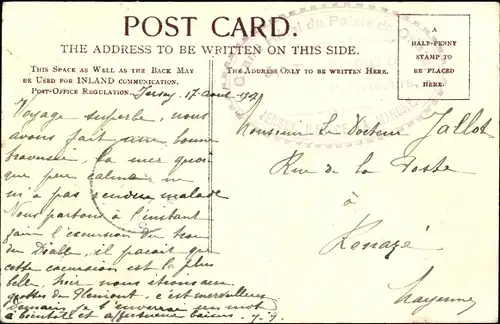 POST CARD.
THE ADDRESS TO BE WRITTEN ON THIS SIDE.
THIS SPACE AS WELL AS THE BACK MAY
BE USED FOR INLAND COMMUNICATION.
POST-OFFICE REGULATION.
THE ADDRESS ONLY TO BE WRITTEN HERE.
A
HALF-PENNY
STAMP TO
BE PLACED
HERE.
Jersey, 17 août
Voyage superbe, nous
avons fait une bonne
traversée, la mer quoi
que peu calme ne
m'a pas rendue malade
Nous partons à l'instant
faire l'excursion du trou
du Diable, il paraît que
cette excursion est la plus
belle, hier nous étions aux
grottes de Plémont, c'est merveilleux
Demain je t'enverrai un mot
à bientôt et affectueux baisers.
Monsieur Le Docteur Jallot
Rue de la Poste
à
Renazé
Mayenne